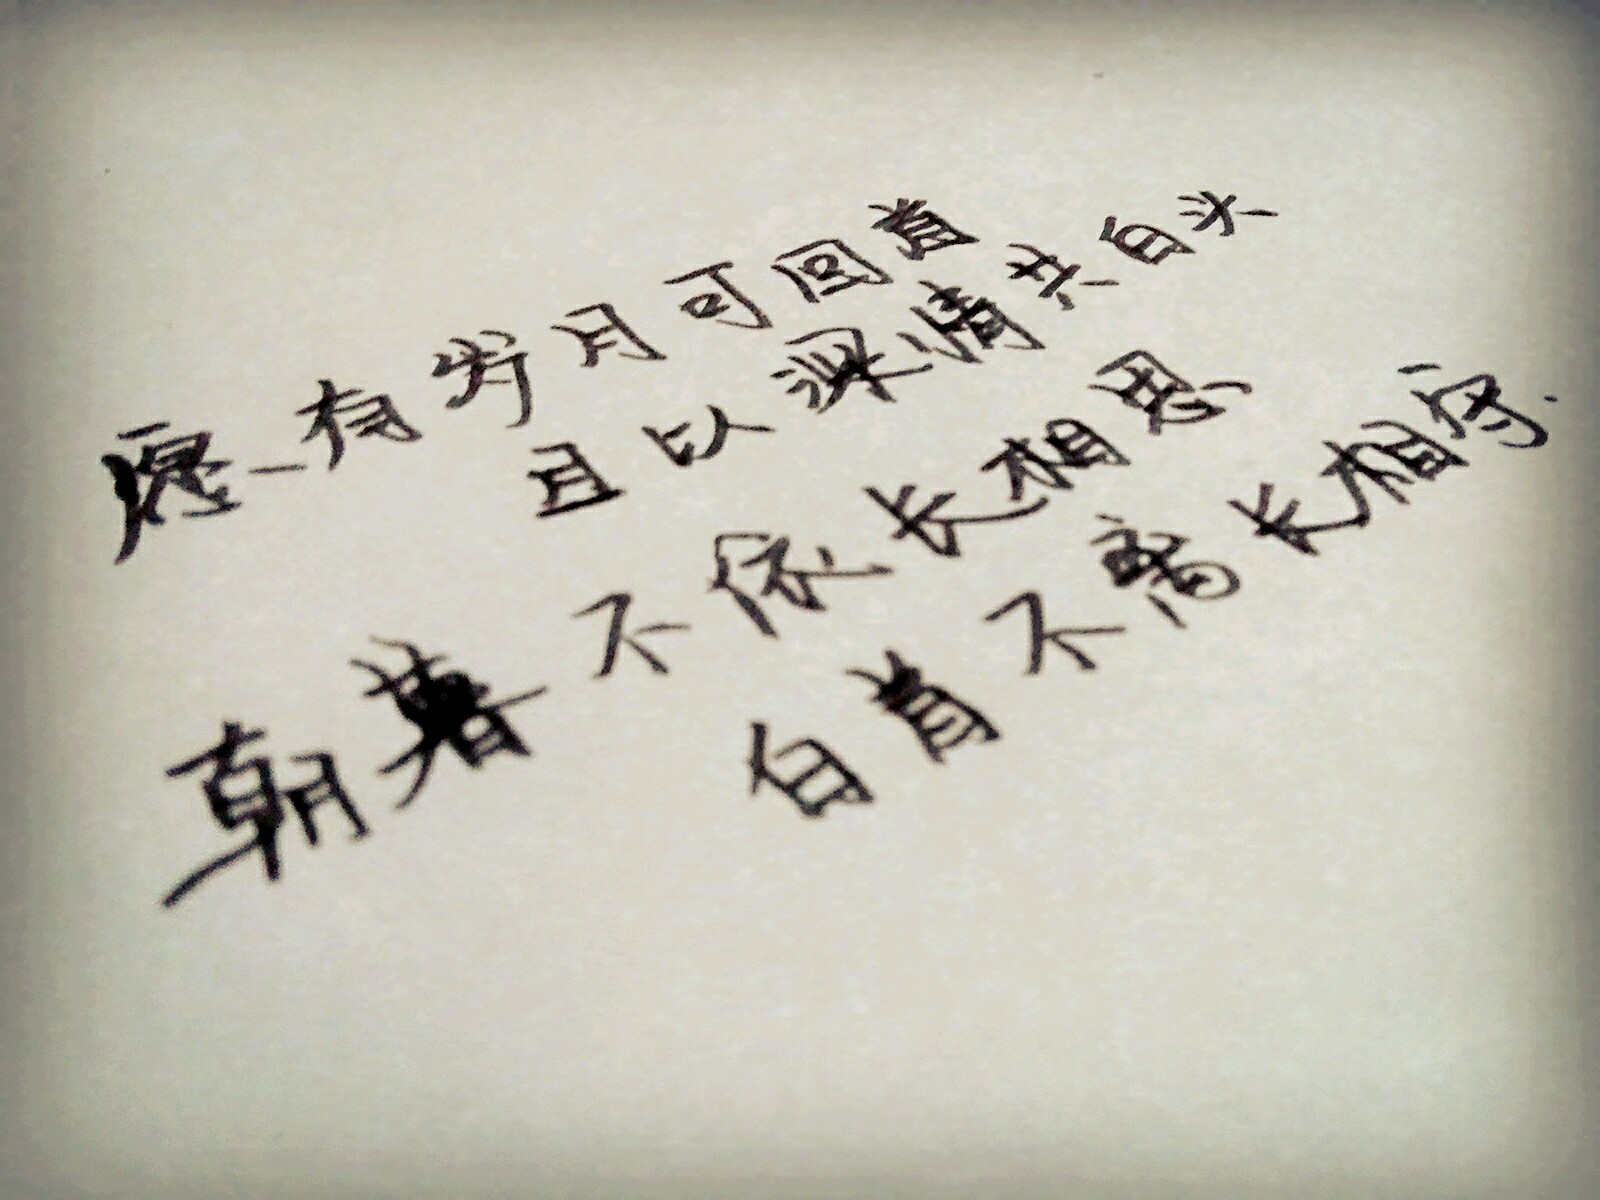 愿有岁月可回首
且以深情共白头
朝暮不依长相思
白首不离长相守.